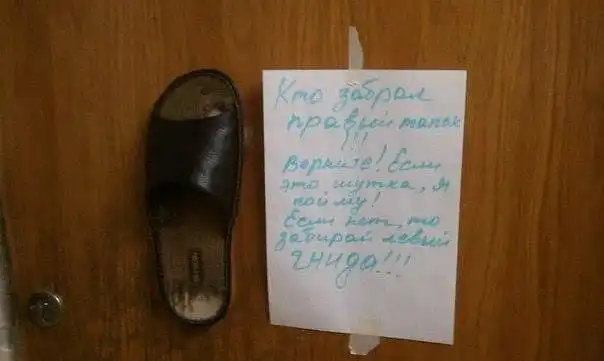 Кто забрал
правый тапок
!!!
Верните! Если
это шутка, я
пойму!
Если нет, то
забирай левый
гнида!!!